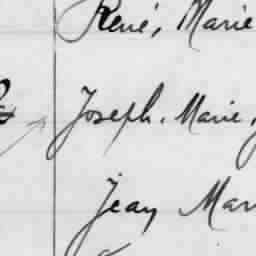 René, Marie
Joseph. Marie,
Jean Mar